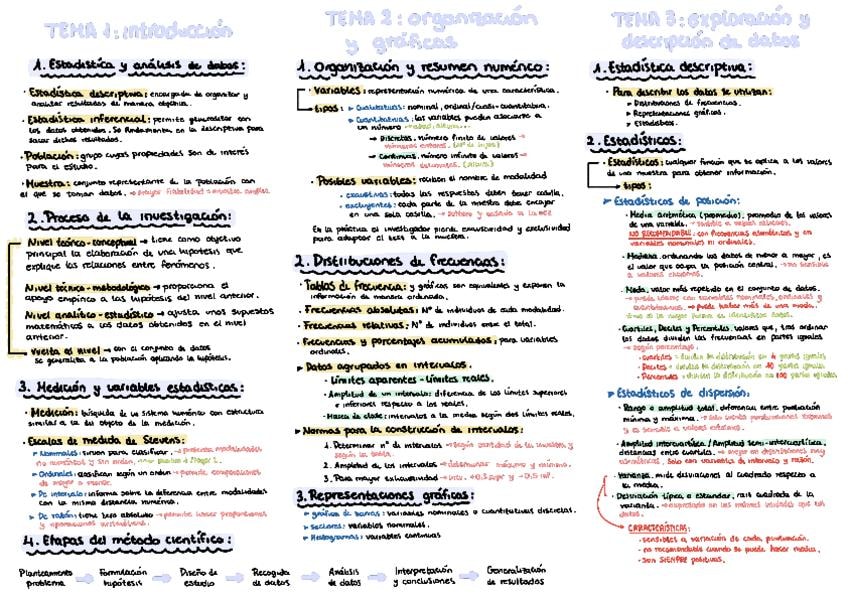 TEMA 1: introducción
1. Estadística y análisis de datos:
· Estadística descriptiva: encargada de organizar y
analizar resultados de manera objetiva.
· Estadística inferencial: permite generalizar con
los datos obtenidos. Se fundamenta en la descriptiva para
sacar dichos resultados.
· Población: grupo cuyas propiedades son de interés
para el estudio.
· Muestra: conjunto representante de la población con
el que se toman datos.
2. Proceso de la investigación:
Nivel teórico-conceptual → tiene como objetivo
principal la elaboración de una hipótesis que
explique las relaciones entre fenómenos.
Nivel técnico-metodológico → proporciona el
apoyo empírico a las hipótesis del nivel anterior.
Nivel analítico-estadístico → ajusta unos supuestos
matemáticos a los datos obtenidos en el nivel
anterior.
Vuelta al nivel → con el conjunto de datos
se generaliza a la población aplicando la hipótesis.
3. Medición y variables estadísticas:
· Medición: búsqueda de un sistema numérico con estructura
similar a la del objeto de la medición.
· Escalas de medida de Stevens:
Nominales: sirven para clasificar.
Ordinales: clasifican según un orden → permite comparaciones
de mayor a menor.
De intervalo: informa sobre la diferencia entre modalidades
con la misma distancia numérica.
De razón: tiene cero absoluto → permite hacer proporciones
4. Etapas del método científico:
Planteamiento problema → Formulación hipótesis → Diseño de estudio → Recogida de datos → Análisis de datos → Interpretación y conclusiones → Generalización de resultados
TEMA 2: organización
y gráficas
1. Organización y resumen numérico:
· Variables: representación numérica de una característica.
tipos: Cualitativas: nominal, ordinal/cuasi-cuantitativa.
Cuantitativas: las variables pueden asociarse a
un número
→ Discretas, número finito de valores →
números enteros. (Nº de hijos)
→ Continuas, número infinito de valores →
números decimales.
· Posibles variables: reciben el nombre de modalidad
exhaustivas: todas las respuestas deben tener casilla.
excluyentes: cada parte de la muestra debe encajar
en una sola casilla.
En la práctica el investigador pierde exhaustividad y exclusividad
para adaptar el test a la muestra.
2. Distribuciones de frecuencias:
· Tablas de frecuencia: y gráficas son equivalentes y exponen la
información de manera ordenada.
· Frecuencias absolutas: Nº de individuos de cada modalidad.
· Frecuencias relativas: Nº de individuos entre el total.
· Frecuencias y porcentajes acumulados: para variables
ordinales.
Datos agrupados en intervalos.
· Límites aparentes - Límites reales.
· Amplitud de un intervalo: diferencia de los límites superiores
e inferiores respecto a los reales.
· Marca de clase: intervalos a la media según dos límites reales.
Normas para la construcción de intervalos:
1. Determinar nº de intervalos →
2. Amplitud de los intervalos →
3. Para mayor exhaustividad →
3. Representaciones gráficas:
gráfica de barras: variables nominales o cuantitativas discretas.
Sectores: variables nominales.
Histogramas: variables continuas
TEMA 3: exploración y
descripción de datos
1. Estadística descriptiva:
· Para describir los datos se utilizan:
Distribuciones de frecuencias.
Representaciones gráficas.
Estadísticos.
2. Estadísticos:
· Estadísticos: cualquier función que se aplica a los valores
de una muestra para obtener información.
tipos:
Estadísticos de posición:
· Media aritmética (promedio), promedio de los valores
de una variable. → sensible a valores
NO RECOMENDABLE: con frecuencias asimétricas y en
variables nominales ni ordinales.
· Mediana, ordenando los datos de menor a mayor, es
el valor que ocupa la posición central. → no sensible
a valores extremos.
· Moda, valor más repetido en el conjunto de datos.
→ puede usarse con variables nominales, ordinales y
cuantitativas. → puede haber más de una moda.
· Cuartiles, Deciles y Percentiles, valores que, tras ordinar
los datos dividen las frecuencias en partes iguales
→ según porcentaje:
· Cuartiles = dividen la distribución en 4 partes iguales
· Deciles = dividen la distribución en 10 partes iguales
· Percentiles = dividen la distribución en 100 partes iguales
Estadísticos de dispersión:
· Rango o amplitud total, diferencia entre puntuación
mínima y máxima.
· Amplitud intercuartílica / Amplitud semi-intercuartílica,
distancias entre cuartiles. → mejor en distribuciones muy
asimétricas. Solo con variables de intervalo y razón.
· Varianza, mide desviaciones al cuadrado respecto a
la media.
· Desviación típica o estándar, raíz cuadrada de la
varianza.
CARACTERÍSTICAS:
- sensibles a variación de cada puntuación.
- no recomendable cuando se puede hacer media.
- son SIEMPRE positivas.